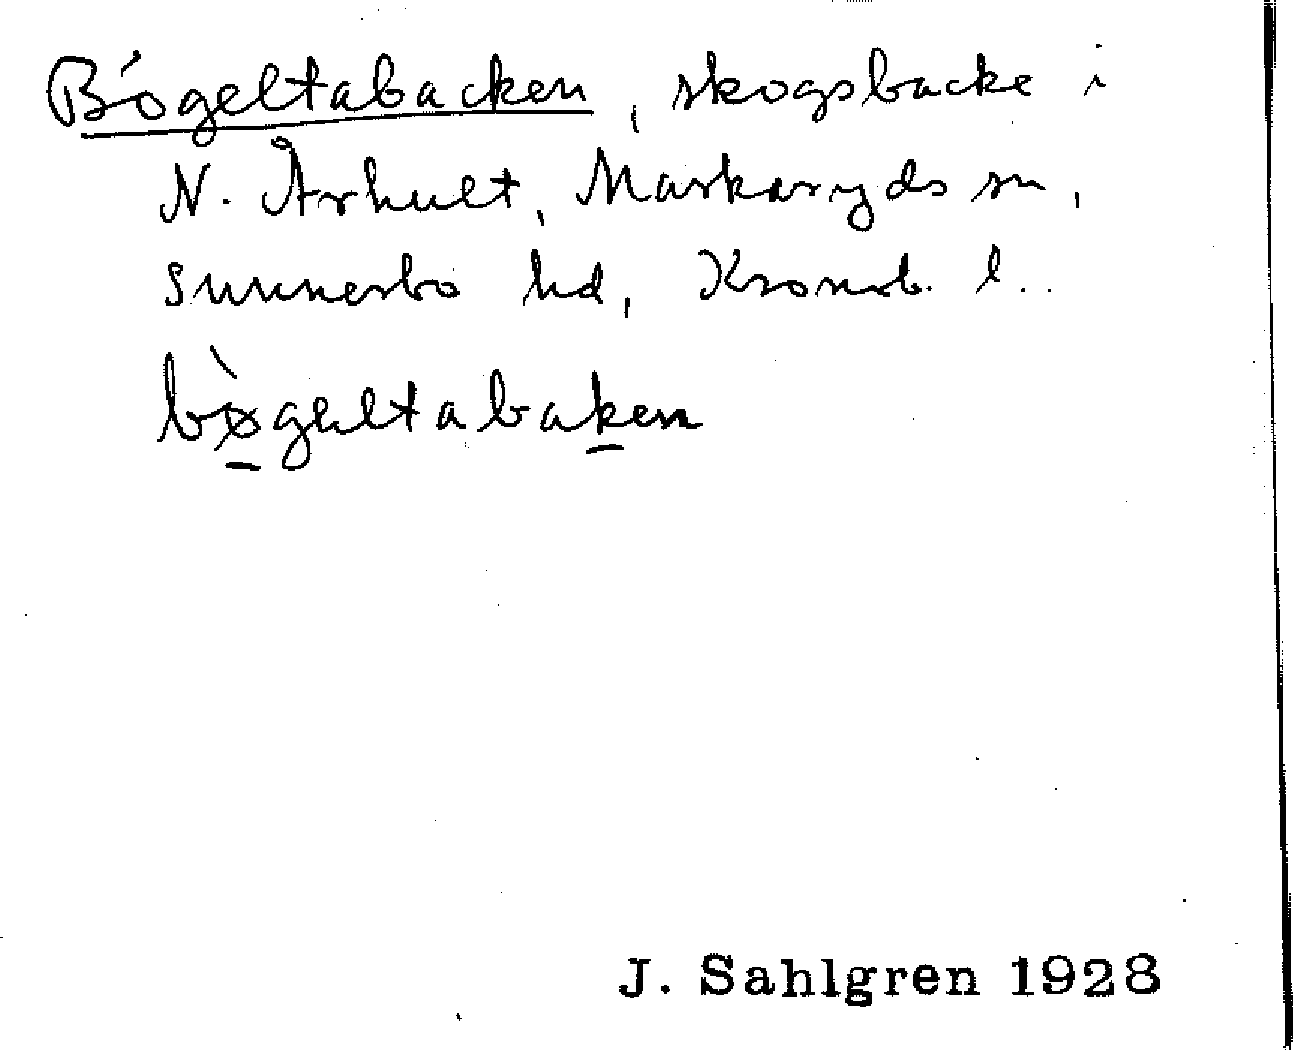 Bögeltabacken, skogsbacke i
N. Århult, Markaryds sn,
Sunnerbo hd, Kronob. l..
bø̀geltabaken
J. Sahlgren 1928